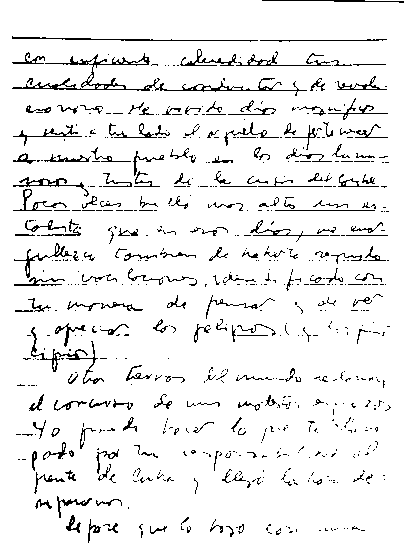 con suficiente celeridad tus
cualidades de conductor y de revolu-
cionario. He vivido días magníficos
y sentí a tu lado el orgullo de pertenecer
a nuestro pueblo en los días lumi-
nosos y tristes de la crisis del Caribe.
Pocas veces brilló más alto un es-
tadista que en esos días, me enor-
gullezco también de haberte seguido
sin vacilaciones, identificado con
tu manera de pensar y de ver
y apreciar los peligros (y los prin
cipios)
Otras tierras del mundo reclaman
el concurso de mis modestos esfuerzos
Yo puedo hacer lo que te está ne
gado por tu responsabilidad al
frente de Cuba y llegó la hora de
separarnos.
Sépase que lo hago con una